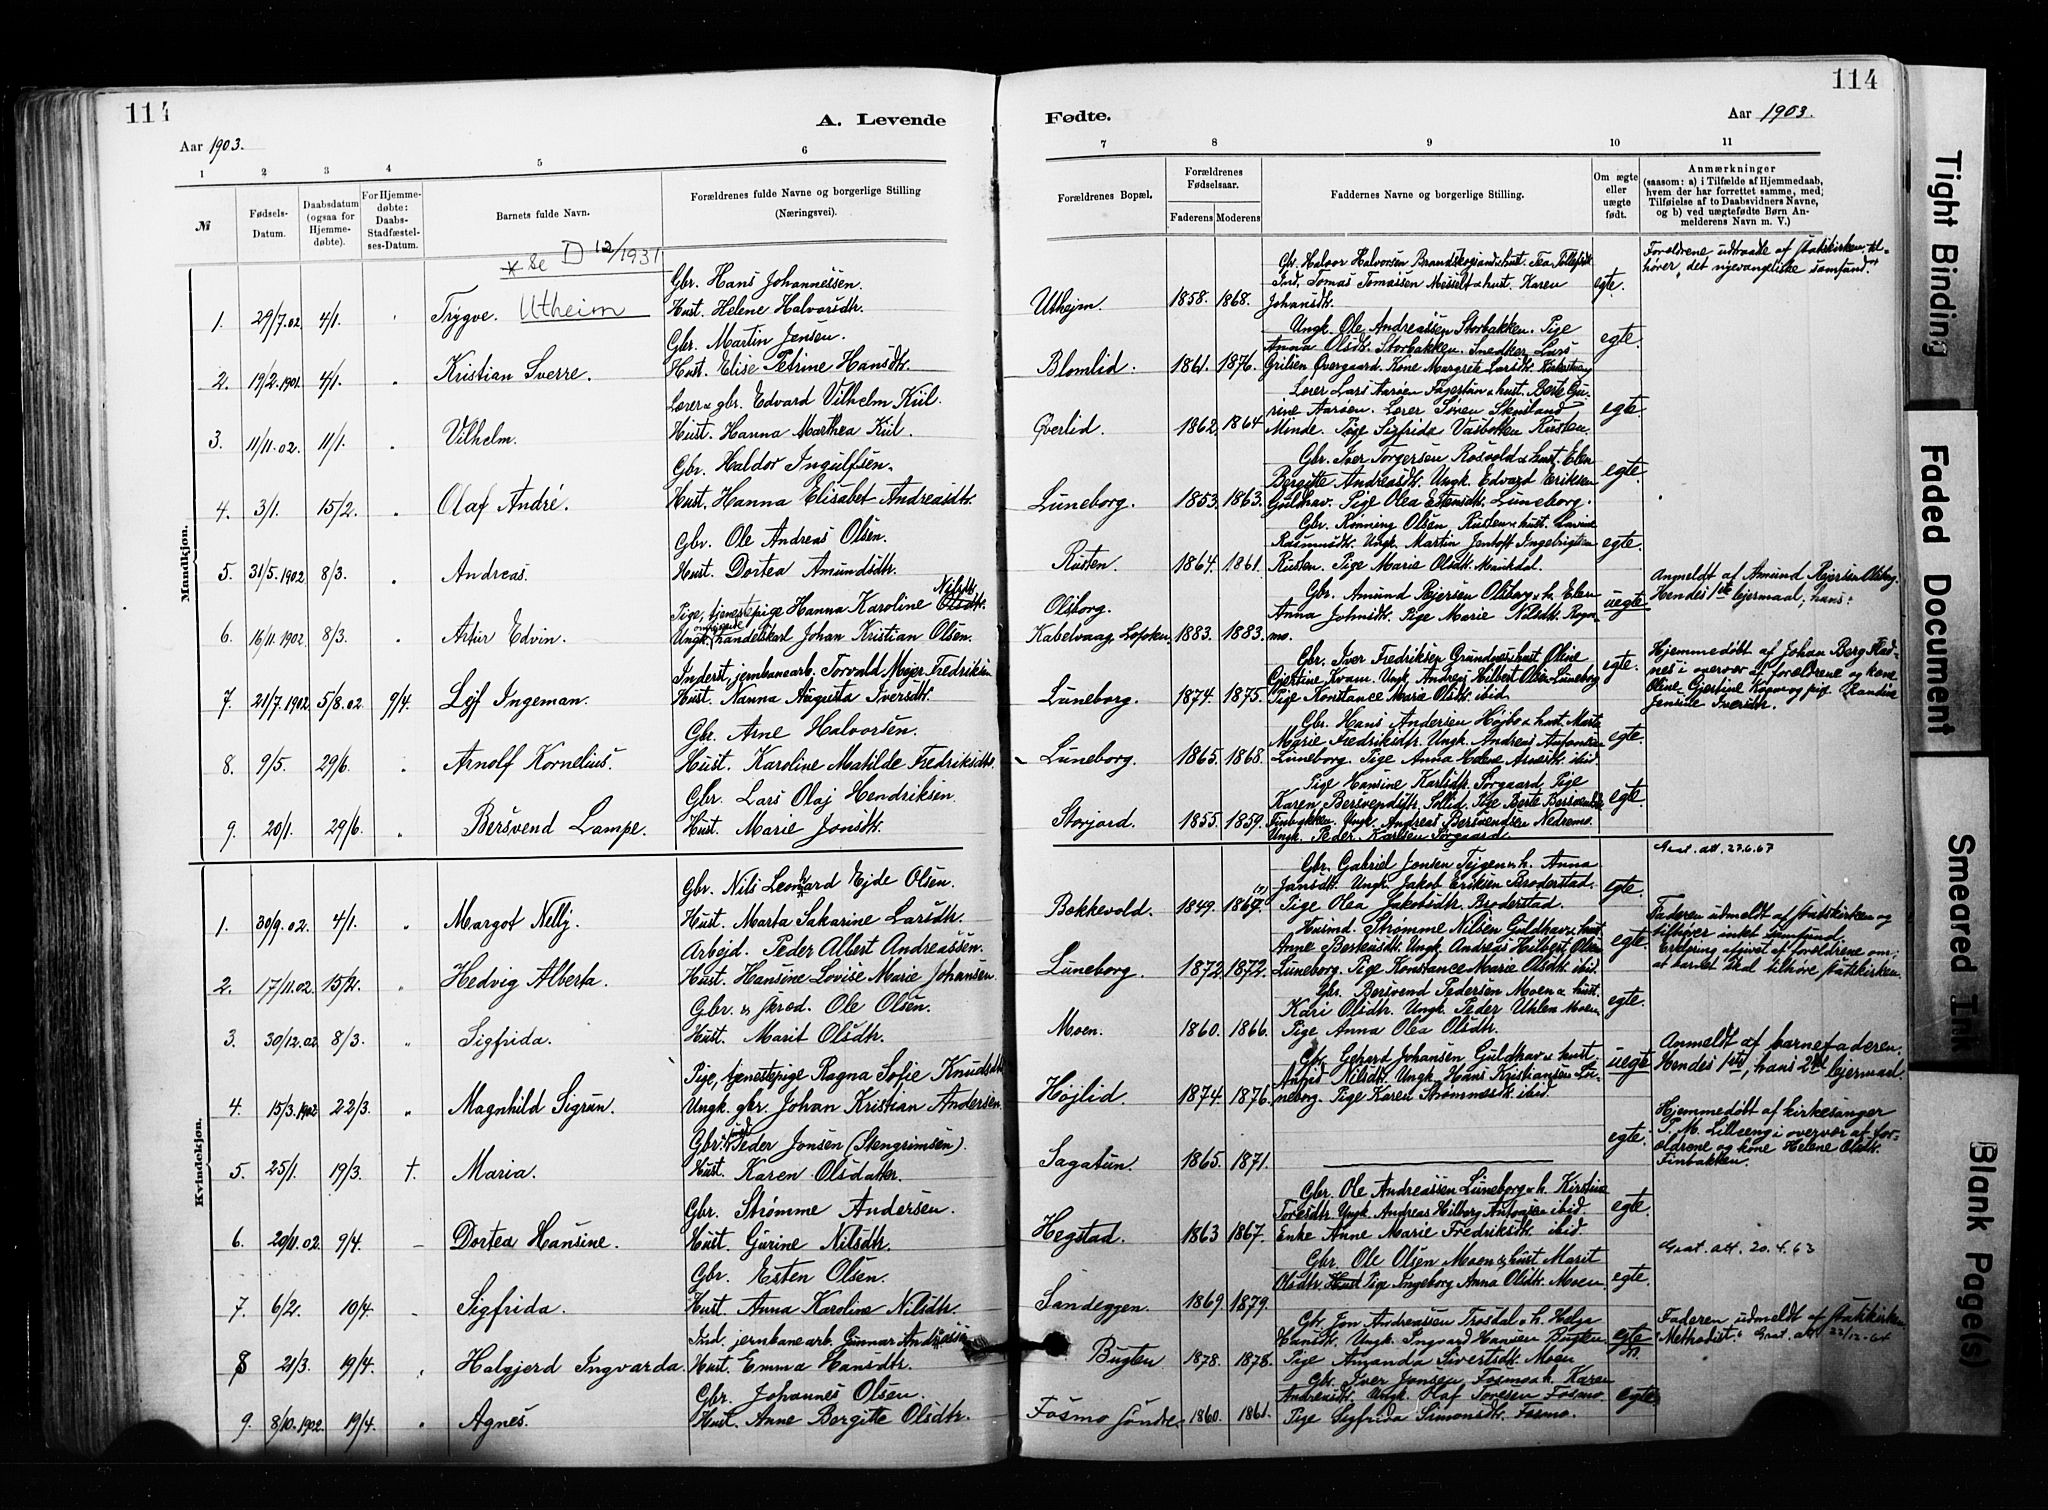 114
114
A. Levende
Fødte.
Aar 1903.
Aar 1903.
1 2 3 4 5 6
7 8 9 10 11
№
Fødsels-Datum.
Daabsdatum (ogsaa for Hjemmedøbte).
For Hjemmedøbte: Daabs-Stadfæstelses-Datum.
Barnets fulde Navn.
Forældrenes fulde Navne og borgerlige Stilling (Næringsvei).
Forældrenes Bopæl.
Forældrenes Fødselsaar.
Faderens Moderens
Faddernes Navne og borgerlige Stilling.
Om ægte eller uægte født.
Anmærkninger
(saasom: a) i Tilfælde af Hjemmedaab, hvem der har forrettet samme, med Tilføielse af to Daabsvidners Navne, og b) ved uægtefødte Børn Anmelderens Navn m. V.)
* Se D 12/1931
Mandkjøn.
Gbr. Hans Johannessen.
1. 29/7.02 4/1. Trygve. Utheim Hust. Helene Halvorsdtr. Utheim. 1858. 1868. egte.
Gbr. Halvor Halvorsen
Ind. Tomas Tomassen Messelt & hust. Karen
Johansdtr.
Foreldrene udtraadte af statskirken,
Gbr. Martin Jensen.
2. 19/2.1901. 4/1. Kristian Sverre. Hust. Elise Petrine Hansdtr. Blomlid. 1861. 1876. egte.
Ungk. Ole Andreassen Storbakken. Pige
Anna Olsdtr. Storbakken. Snedker Lars
Lærer & gbr. Edvard Vilhelm Kiil.
3. 11/11.02. 11/1. Vilhelm. Hust. Hanna Marthea Kiil. Øverlid. 1862. 1864 egte.
Minde. Pige Sigfrida Vasbotten Rusten.
Gbr. Haldor Ingulfsen.
4. 3/1. 15/2. Olaf André. Hust. Hanna Elisabet Andreasdtr. Luneborg. 1853. 1863. egte.
Gbr. Iver Torgersen Rosvold & hust. Elen
Bergitte Andreasdtr. Ungk. Edvard Eriksen
Guldhav. Pige Olea Estensdtr. Luneborg.
Gbr. Ole Andreas Olsen.
5. 31/5.1902 8/3. Andreas. Hust. Dortea Amundsdtr. Rusten 1864. 1861. egte.
Gbr. Rønning Olsen Rusten & hust. Lavine
Rasmusdtr. Ungk. Martin Jentoft Ingebrigtsen
Rusten. Pige Marie Olsdtr.
Pige, tjenestepige Hanna Karoline Nilsdtr.
6. 16/11.1902 8/3. Artur Edvin. Ungk. handelskarl Johan Kristian Olsen. Olsborg. Kabelvaag, Lofoten 1883. 1883. uegte
Gbr. Amund Rejersen Olsborg & h. Elen
Anna Johnsdtr. Pige Marie Nilsdtr. Rognmo.
Anmeldt af Amund Rejersen Olsborg.
Hendes 1ste lejermaal; hans:
Inderst, jernbanearb. Torvald Mejer Fredriksen
7. 21/7.1902 5/8.02. 9/4. Lejf Ingeman. Hust. Nanna Augusta Iversdtr. Luneborg. 1874. 1875. egte.
Gbr. Iver Fredriksen Grundnes & hust. Oline
Gjertine Kvam. Ungk. Andreas Hilbert Olsen Luneborg
Pige Konstance Marie Olsdtr. ibid.
Hjemmedøbt af Johan Berg
nes i overvær af foreldrene og kone
Oline Gjertine Kvam og pige Randine
Jensine Iversdtr.
Gbr. Arne Halvorsen.
8. 9/5. 29/6. Arnolf Kornelius. Hust. Karoline Matilde Fredriksdtr. Luneborg. 1865. 1868. egte.
Gbr. Hans Andersen Højbo & hust. Marta
Marie Fredriksdtr. Ungk. Andreas Antonsen
Luneborg. Pige Anna Helene ibid.
Gbr. Lars Olaj Hendriksen.
9. 20/1. 29/6. Bersvend Lampe. Hust. Marie Jonsdtr. Storjord. 1855. 1859. egte.
Pige Hansine Karlsdtr. Sørgaard, Pige
Karen Bersvendsdtr. Sollid. Pige Berte Bersvendsdtr.
Finbakken. Ungk. Andreas Bersvendsen Nedremo.
Ungk. Peder Karlsen Sørgaard
Kvindekjøn.
Grat. att. 27.6.67
Gbr. Nils Leonhard Ejde Olsen.
1. 30/9.02. 4/1. Margot Nelly. Hust. Marta Sakarine Larsdtr. Bokkevold. 1849. 1867. egte.
Gbr. Gabriel Jonsen Tejgen & h. Anna
Jansdtr. Ungk. Jakob Eriksen Broderstad.
Pige Olea Jakobsdtr. Broderstad.
Arbejd. Peder Albert Andreassen.
2. 17/11.02. 15/2. Hedvig Alberta. Hust. Hansine Lovise Marie Johansen. Luneborg. 1872. 1872. egte.
Husmd. Strømme Nilsen Guldhav & hust.
Anne Ungk. Andreas Hilbert Olsen
Luneborg. Pige Konstance Marie Olsdtr. ibid.
Faderen udmeldt af statskirken og
tilhører intet samfund.
Erklæring afgivet af foreldrene om,
at barnet skal tilhøre statskirken.
Gbr. & skræd. Ole Olsen.
3. 30/12.02 8/3. Sigfrida. Hust. Marit Olsdtr. Moen. 1860. 1866. egte.
Gbr. Bersvend Pedersen Moen & hust.
Kari Olsdtr. Ungk. Peder Uhlen Moen
Pige Anna Olea Olsdtr.
Pige, tjenestepige Ragna Sofie Knudsdtr.
4. 15/3.1902 22/3. Magnhild Sigrun. Ungk. gbr. Johan Kristian Andersen. Højlid. 1874. 1876. uegte
Gbr. Gerhard Johansen Guldhav & hust.
Nilsdtr. Ungk. Hans Kristiansen Luneborg. Pige Karen Strømmesdtr. ibid.
Anmeldt af barnefaderen.
Hendes 1ste, hans 2det lejermaal.
Gbr. Peder Jonsen (Stengrimsen).
5. 25/1. 19/3. †. Maria. Hust. Karen Olsdatter. Sagatun. 1865. 1871. egte.
Hjemmedøbt af kirkesanger
P. M. Lilleeng i overvær af foreldrene og kone Helene Olsdtr.
Finbakken.
Gbr. Strømme Andersen.
6. 20/11.02. 9/4. – Dortea Hansine. Hust. Gurine Nilsdtr. Hegstad. 1863 1867. egte.
Gbr. Ole Andreassen Luneborg & h. Kirstine
Toresdtr. Ungk. Andreas Hilberg Antonsen ibid
Enke Anne Marie Fredriksdtr. ibid.
Grat. att. 20.4.63
Gbr. Esten Olsen.
7. 6/2. 10/4. – Sigfrida. Hust. Anna Karoline Nilsdtr. Sandeggen. 1869. 1879. egte.
Gbr. Ole Olsen Moen & hust Marit
Olsdtr. Hust Pige Ingeborg Anna Olsdtr. Moen.
Ind. jernbanearb. Gunnar Andreassen
8 21/3. 19/4. Halgjerd Ingvarda. Hust. Emma Hansdtr. Bugten 1878. 1878. egte
Gbr. Jon Andreassen Trosdal & h. Helga
Hansdtr. Ungk. Ingvard Hansen Bugten
Pige Amanda Sivertsdtr. Moen
Faderen udmeldt af statskirken
"Methodist". Grat. att. 22/12-64
Gbr. Johannes Olsen.
9. 8/10.1902. 19/4. Agnes. Hust. Anne Bergitte Olsdtr. Fosmo Søndre 1860. 1861. egte
Gbr. Iver Jonsen Fosmo & h. Karen
Andreasdtr. Ungk. Olaf Toresen Fosmo.
Pige Sigfrida Simonsdtr. Fosmo.
Tight Binding
Faded Document
Smeared Ink
Blank Page(s)